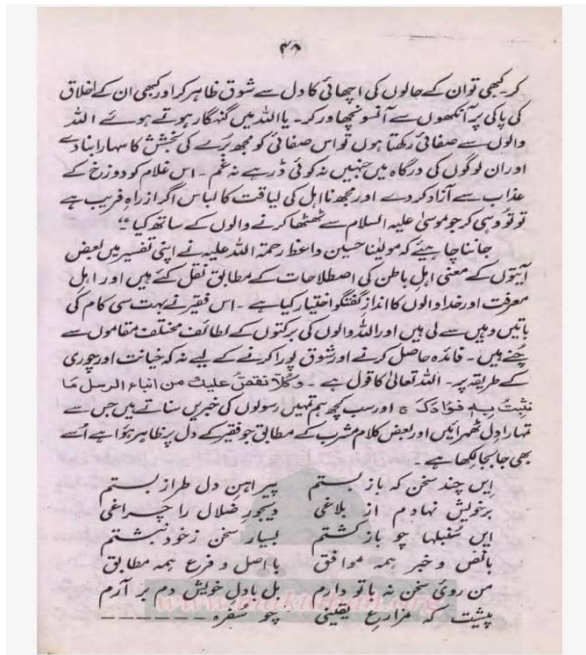 ۴۸
کر۔ کبھی تو ان کے حالوں کی اچھائی کا دل سے شوق ظاہر کر اور کبھی ان کے اخلاق
کی پاکی پر آنکھوں سے آنسو نچھاور کر۔ یا اللہ میں گنہگار ہوتے ہوئے اللہ
والوں سے صفائی رکھتا ہوں تو اس صفائی کو مجھ بُرے کی بخشش کا سہارا بنا دے
اور ان لوگوں کی درگاہ میں جنہیں نہ کوئی ڈر ہے نہ غم۔ اس غلام کو دوزخ کے
عذاب سے آزاد کر دے اور مجھ نااہل کی لیاقت کا لباس اگر از راہِ فریب ہے
تو تو وہی کر جو موسیٰ علیہ السلام سے ٹھٹھا کرنے والوں کے ساتھ کیا
جاننا چاہیئے کہ مولینا حسین واعظ رحمۃ اللہ علیہ نے اپنی تفسیر میں بعض
آیتوں کے معنی اہلِ باطن کی اصطلاحات کے مطابق نقل کئے ہیں اور اہل
معرفت اور خدا والوں کا اندازِ گفتگو اختیار کیا ہے۔ اس فقیر نے بہت سی کام کی
باتیں وہیں سے لی ہیں اور اللہ والوں کی برکتوں کے لطائف مختلف مقاموں سے
چُنے ہیں۔ فائدہ حاصل کرنے اور شوق پورا کرنے کے لیے نہ کہ خیانت اور چوری
کے طریقہ پر۔ اللہ تعالیٰ کا قول ہے۔ وکلا نقص علیک من انباء الرسل ما
نثبت بہ فؤادک ج اور سب کچھ ہم تمہیں رسولوں کی خبریں سناتے ہیں جس سے
تمہارا دل ٹھہرائیں اور بعض کلام مشرب کے مطابق جو فقیر کے دل پر ظاہر ہوا ہے اُسے
بھی جابجا لکھا ہے۔
ایں چند سخن کہ باز بستم پیراہن دل طراز بستم
برخویش نہادم از بلاغی دیجور ضلال را چراغی
ایں سنبلہا چو باز کشتم بسیار سخن زخود نبشتم
بانص و خبر ہمہ موافق با اصل و فرع ہمہ مطابق
من روئ سخن نہ با تو دارم بل با دل خویش دم بر آرم
پیشت کہ مزارع یقینی سُفرہ ---------